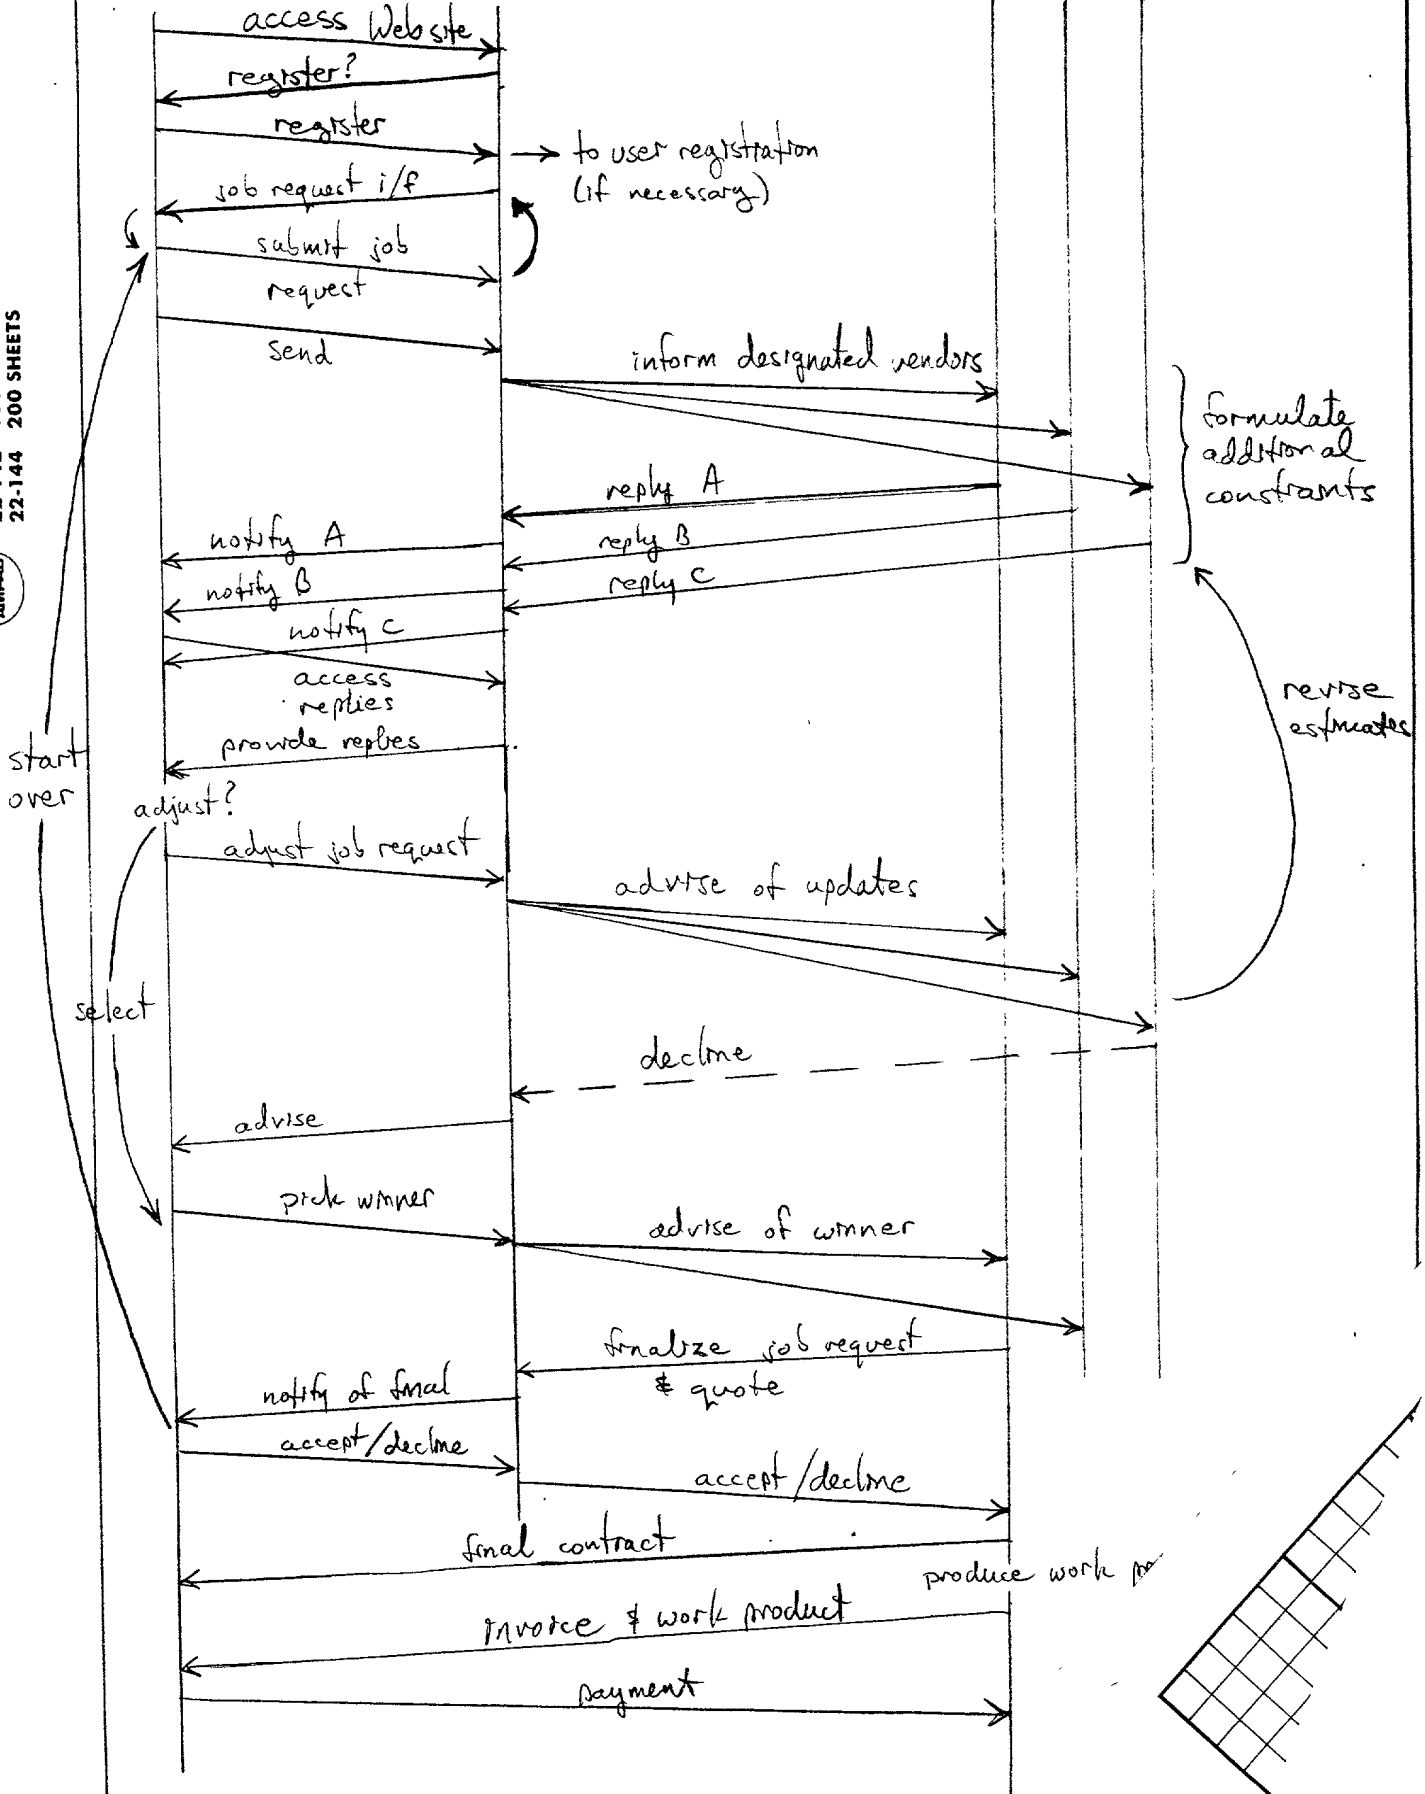 access Website
register?
register
to user registration
(if necessary)
job request i/f
submit job
request
send
22-144 200 SHEETS
inform designated vendors
formulate
additional
constraints
reply A
notify A
reply B
notify B
reply C
notify C
access
replies
revise
estimates
provide replies
start
over
adjust?
adjust job request
advise of updates
select
decline
advise
pick winner
advise of winner
finalize job request
& quote
notify of final
accept/decline
accept/decline
final contract
produce work
invoice & work product
payment